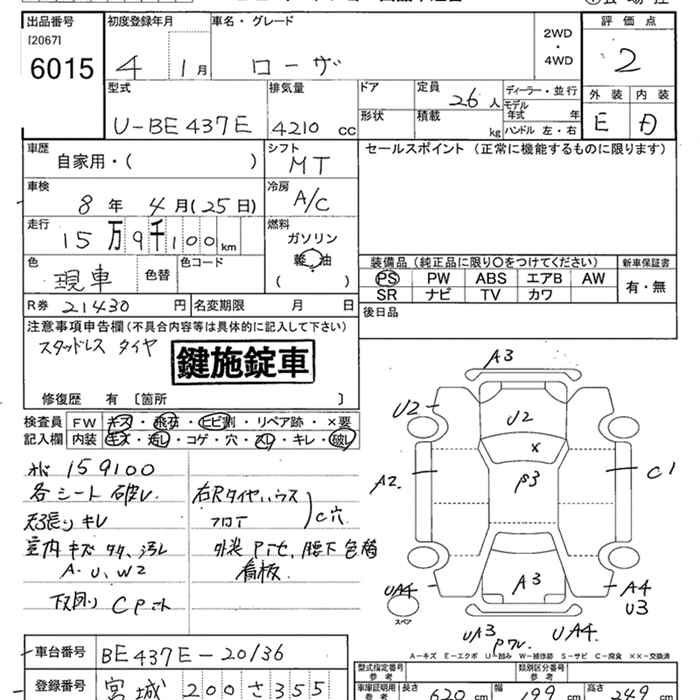 出品番号 初度登録年月 車名・グレード 2WD・4WD 評価点
[2067]
6015 4 1月 ローザ 2
型式 排気量 ドア 定員 26人 ディーラー・並行 外装 内装
U-BE437E 4210 cc 形状 積載 kg モデル年式 年 E D
ハンドル 左・右
車歴 シフト セールスポイント (正常に機能するものに限ります)
自家用・( ) MT
車検 冷房
8年 4月(25日) A/C
走行 燃料
15万9千100km ガソリン
軽油
色 色替 色コード ( ) 装備品(純正品に限り○をつけてください) 新車保証書
現車 PS PW ABS エアB AW 有・無
SR ナビ TV カワ
R券 21430円 名変期限 月 日 後日品
注意事項申告欄(不具合内容等は具体的に記入して下さい)
スタッドレス タイヤ
鍵施錠車
修復歴 有 〔箇所 〕
検査員 FW キズ・飛石・ヒビ割・リペア跡・×要
記入欄 内装 キズ・汚レ・コゲ・穴・スレ・キレ・破レ
159100
各シート 破レ
天張り キレ
室内 キズ 汚レ
A.U.W2
下回り
右Rタイヤハウス
フロア
C穴
外装 腰下 色替
看板
A3
U2
U2
X
A2
P3
C1
A3
UA4
A4
U3
スペア
UA3
UA4
A-キズ E-エクボ U-凹み W-補修跡 S-サビ C-腐食 XX-交換済
車台番号 BE437E-20136 型式指定番号 参考 類別区分番号 参考
登録番号 宮城200さ355 車庫証明用 参考 長さ 620cm 幅 199cm 高さ 249cm